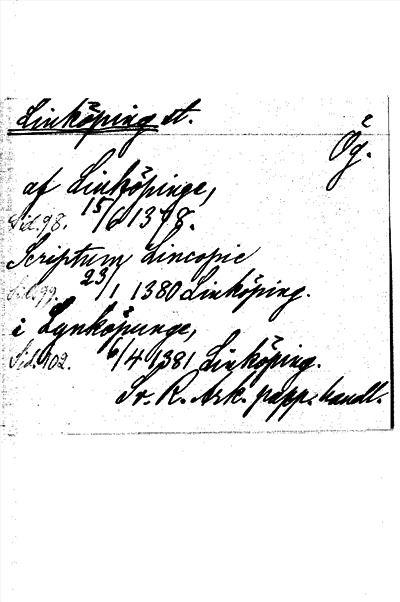 Linköping st.
Ög.
af Linköpinge,
Sid. 98. 15/6 1378.
Scriptum Lincopie
Sid. 99. 23/1 1380 Linköping.
i Lynköpunge,
Sid. 102. 6/4 1381 Linköping.
Sv. R. Ark. papp. handl.